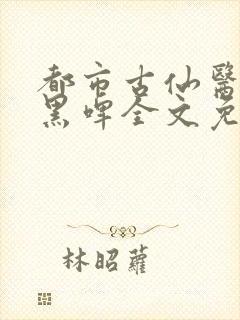 都市古仙醫
黑啤全文免
林昭蘿